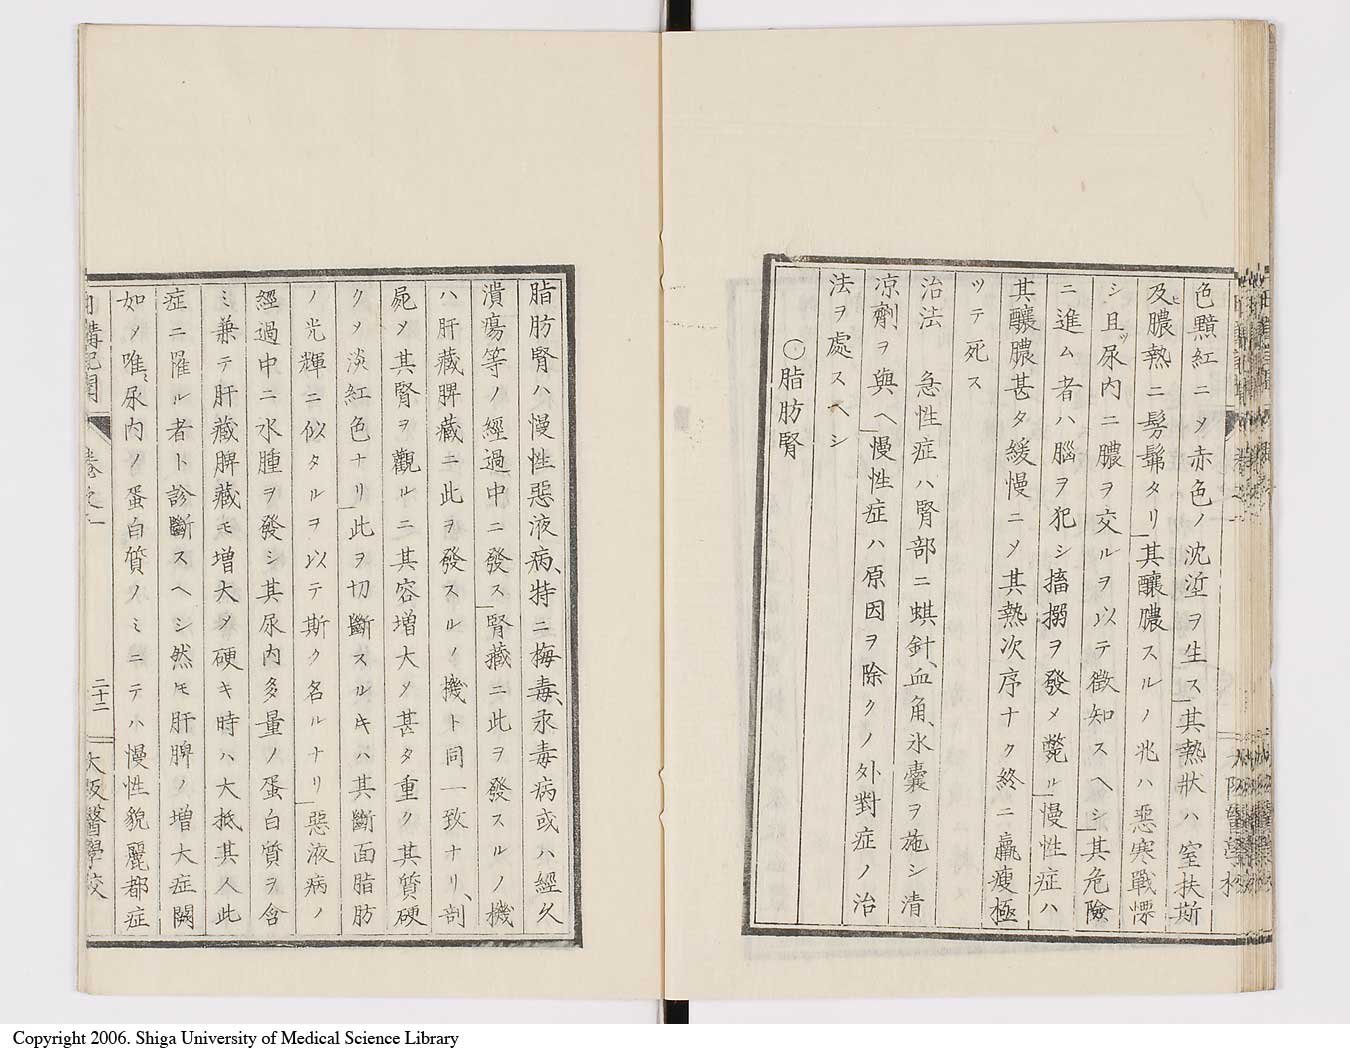 色黯紅ニメ赤色ノ沈埿ヲ生ス其熱狀ハ窒扶斯
及ヒ膿熱ニ髣髴タリ其釀膿スルノ兆ハ惡寒戰慄
シ且ツ尿内ニ膿ヲ交ルヲ以テ徴知スヘシ其危險
ニ進ム者ハ腦ヲ犯シ搐搦ヲ發メ斃ル慢性症ハ
其釀膿甚タ緩慢ニメ其熱次序ナク終ニ羸瘦極
ツテ死ス
治法 急性症ハ腎部ニ蜞針、血角、氷囊ヲ施シ清
涼劑ヲ與ヘ慢性症ハ原因ヲ除クノ外對症ノ治
法ヲ處スヘシ
〇脂肪腎
脂肪腎ハ慢性惡液病、特ニ梅毒、汞毒病或ハ經久
潰瘍等ノ經過中ニ發ス腎藏ニ此ヲ發スルノ機
ハ肝藏脾藏ニ此ヲ發スルノ機ト同一致ナリ、剖
屍メ其腎ヲ觀ルニ其容增大メ甚タ重ク其質硬
クメ淡紅色ナリ此ヲ切斷スルキハ其斷面脂肪
ノ光輝ニ似タルヲ以テ斯ク名ルナリ惡液病ノ
經過中ニ水腫ヲ發シ其尿内多量ノ蛋白質ヲ含
ミ兼テ肝藏脾藏モ增大メ硬キ時ハ大抵其人此
症ニ罹ル者ト診斷スヘシ然モ肝脾ノ增大症闕
如メ唯、尿内ノ蛋白質ノミニテハ慢性貌麗都症
日講記聞 卷之 二十二 大阪醫學校
Copyright 2006. Shiga University of Medical Science Library